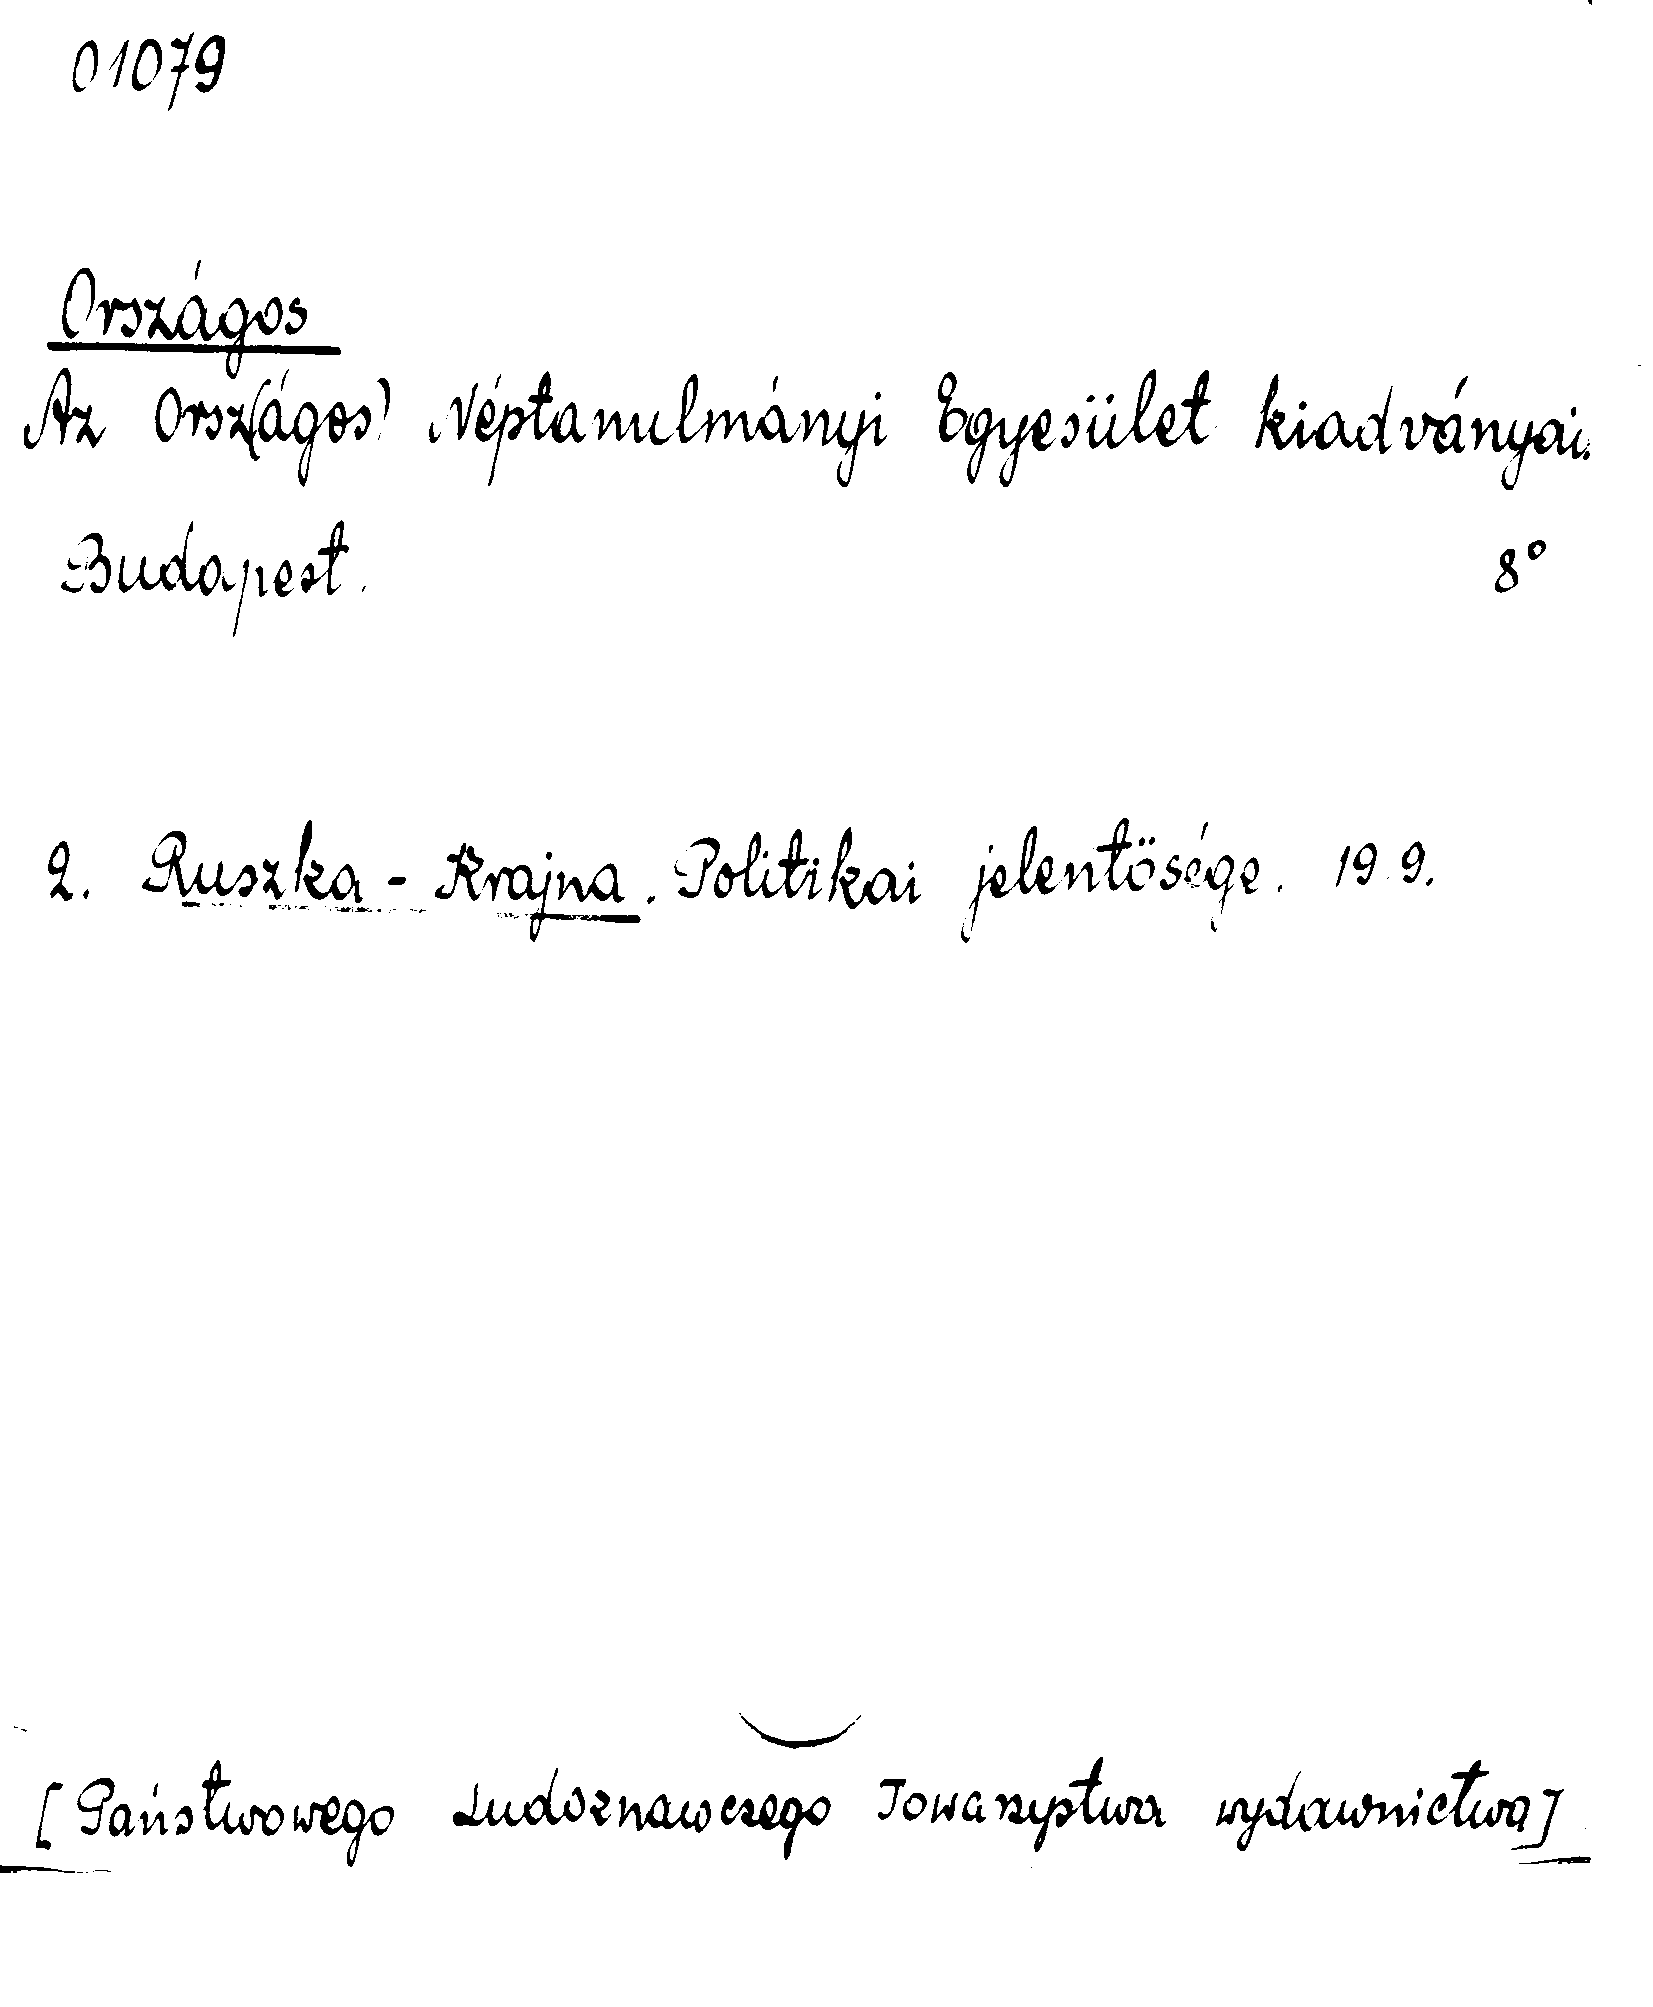 01079
Országos
Az Orsz(ágos) Néptanulmányi Egyesület kiadványai.
Budapest. 8°
2. Ruszka - Krajna. Politikai jelentösége. 19 9.
[Państwowego Ludoznawczego Towarzystwa wydawnictwa]